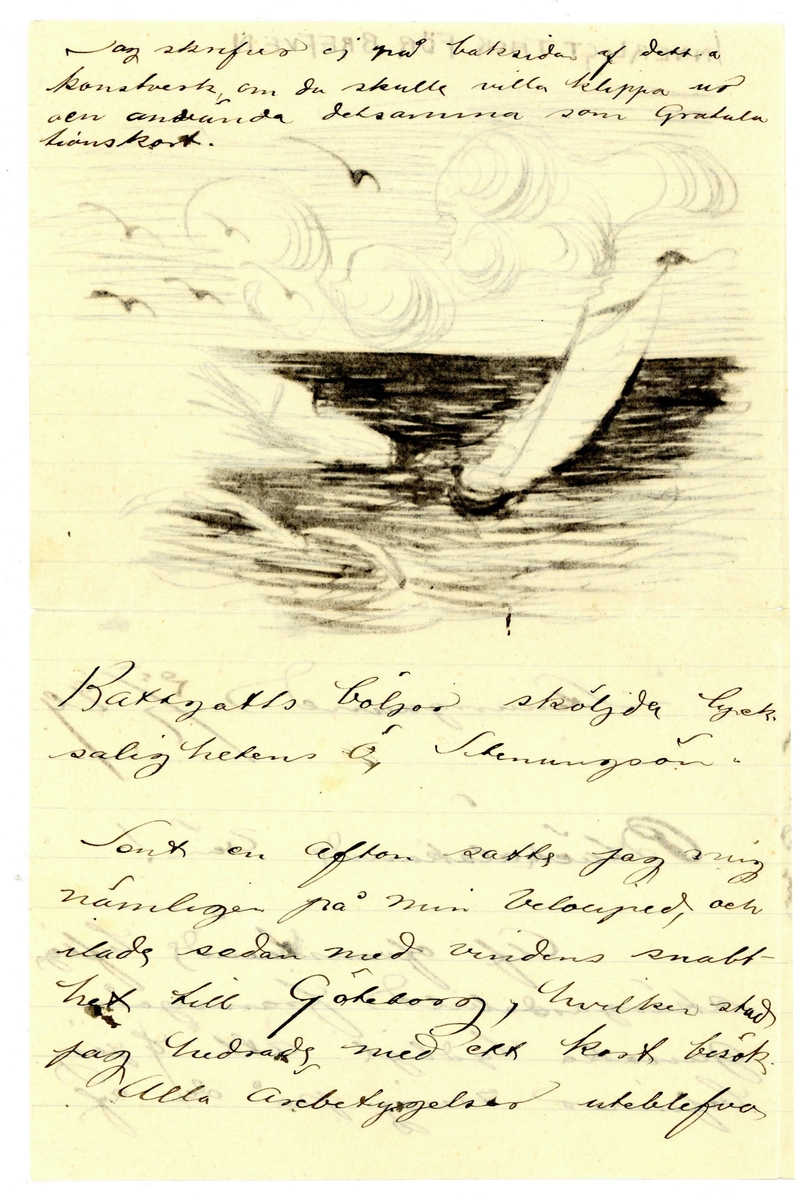 Jag skrifver ej på baksidan af detta
konstverk, om du skulle villa klippa ut
och använda detsamma som Gratula
tionskort.
Kattegatts böljor skölja lyck-
salighetens Ö, Stenungsön.
Sent en afton satte jag mig
nämligen på min Velociped, och
ilade sedan med vindens snabb-
het till Göteborg, hvilken stad
jag hedrade med ett kort besök.
Alla ärebetygelser uteblefvo